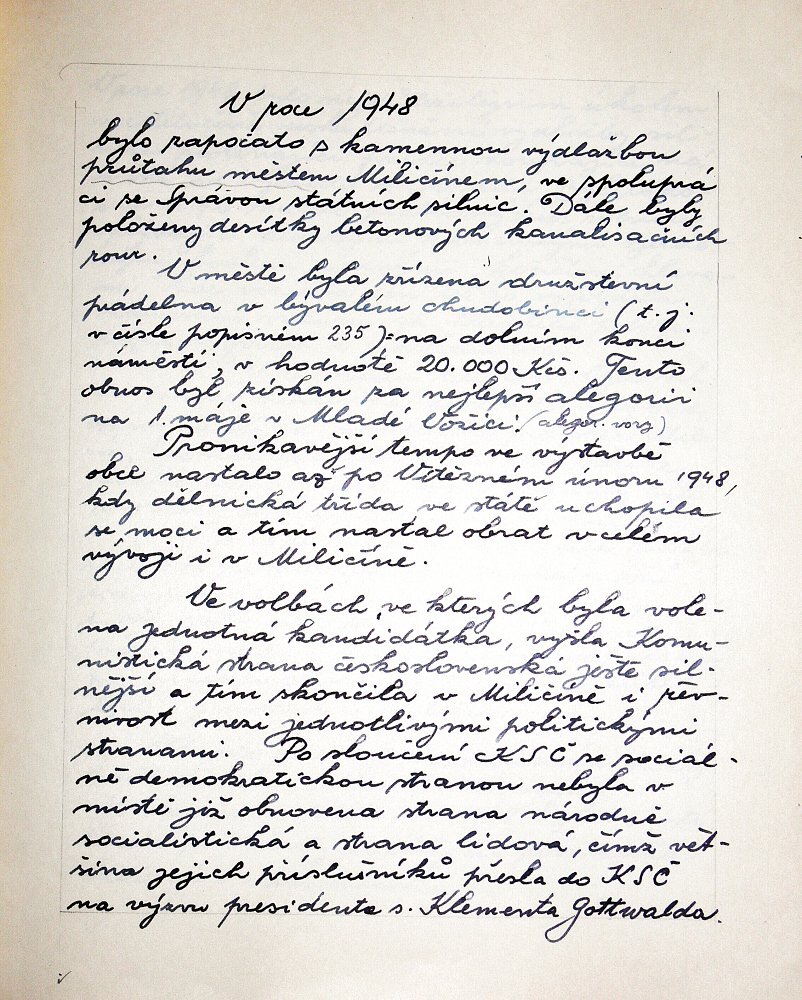 V roce 1948
bylo započato s kamennou výdlažbou
průtahu městem Miličínem, ve spoluprá
ci se Správou státních silnic. Dále byly
položeny desítky betonových kanalisačních
rour.
V městě byla zřízena družstevní
prádelna v bývalém chudobinci (t. j.
v čísle popisném 235) na dolním konci
náměstí, v hodnotě 20.000 Kčs. Tento
obnos byl získán za nejlepší alegorii
na 1. máje v Mladé Vožici. (alegor. vozy)
Pronikavější tempo ve výstavbě
obce nastalo až po Vítězném únoru 1948,
kdy dělnická třída ve státě uchopila
se moci a tím nastal obrat v celém
vývoji i v Miličíně.
Ve volbách, ve kterých byla vole-
na jednotná kandidátka, vyšla Komu-
nistická strana československá ještě sil-
nější a tím skončila v Miličíně i řev-
nivost mezi jednotlivými politickými
stranami. Po sloučení KSČ se sociál-
ně demokratickou stranou nebyla v
místě již obnovena strana národně
socialistická a strana lidová, čímž vět-
šina jejich příslušníků přešla do KSČ
na výzvu presidenta s. Klementa Gottwalda.